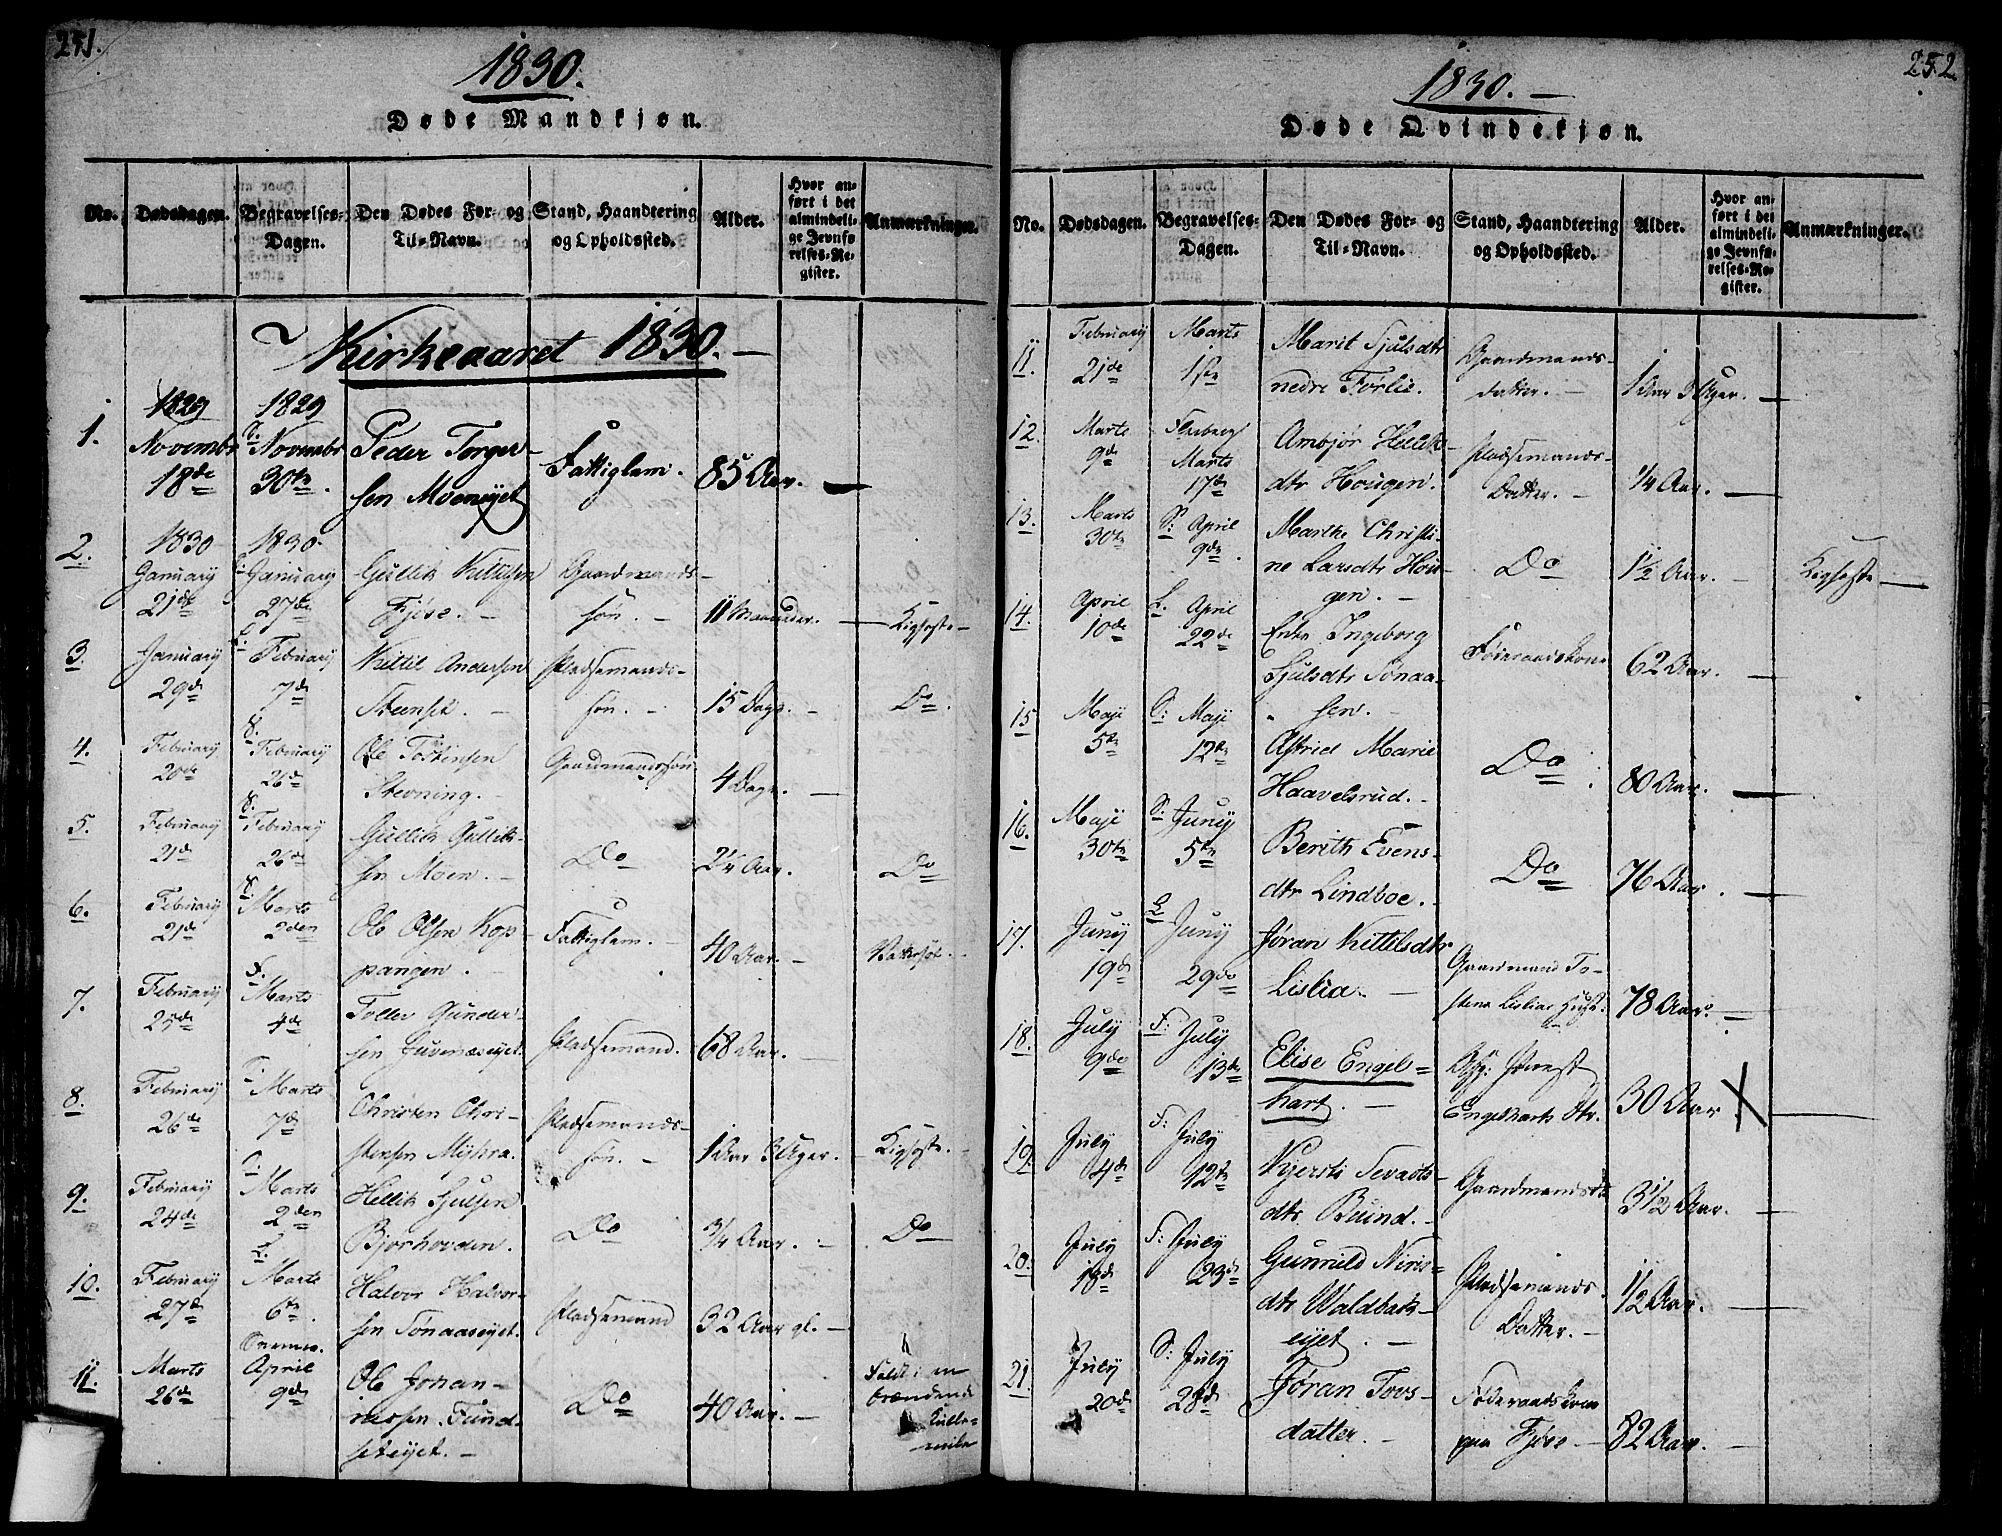 251.
1830.
Døde Mandkjøn.
No.
Dødsdagen.
Begravelses-
Dagen.
Den Dødes For- og
Til-Navn.
Stand, Haandtering
og Opholdssted.
Alder.
Hvor an-
ført i det
almindeli-
ge Jevnfø
relses-Re-
gister.
Anmærkninger.
Kirkeaaret 1830. —
1.
1829
Novembr
18de
1829
Novembr
30te.
Peder Torger-
sen Moeneyet
Fattiglem.
85 Aar. —
2.
1830
January
21de
1830
January
27de
Gullik Kittilsen
Fjøse. —
Gaardmands-
søn. —
11 Maaneder. —
Kighoste —
3.
January
29de
L: February
7de
Kittil Andersen
Steenset. —
Pladsemands-
søn. —
15 Dage. —
Do.
4.
February
20de
S. February
26de
Ole Tostensen
Stevning. —
Gaardmandssøn
4 Dage. —
5.
February
21de
S. February
26de
Gullik Gullik-
sen Moen. —
Do
2¼ Aar.
Do
6.
February
21de
S. Marts
2den
Ole Olsen Kop-
pangen.
Fattiglem. —
40 Aar. —
Vattersot. —
7.
February
25de
F. Marts
4de
Toller Gunder-
sen Juvenæseyet.
Pladsemand.
68 Aar. —
8.
February
26de
Marts
7de
Christen Chri-
stensen Myhra.
Pladsemands-
søn. —
1 Aar 3 Uger. —
Kighoste. —
9.
February
24de
Marts
2den
Hellik Gjulsen
Bjorhovden.
Do
¾ Aar. —
Do
10.
February
27de
L. Marts
6te.
Halvor Halvor-
sen Tønaaseyet.
Pladsemand
32 Aar gl. —
11.
Marts
26de
April
9de
Ole Johan-
nessen Fund-
seteyet. —
Do
40 Aar. —
Faldt i en
brændende
Kulle-
mile
252
1830. —
Døde Qvindekjøn.
No.
Dødsdagen.
Begravelses-
Dagen.
Den Dødes For- og
Til-Navn.
Stand, Haandtering
og Opholdssted.
Alder.
Hvor an-
ført i det
almindeli-
ge Jevnfø-
relses-Re-
gister.
Anmærkninger.
11.
February
21de
Marts
1ste
Marit Gjulsdtr
nedre Forlie.
Gaardmands-
datter. —
1 Aar 3 Uger. —
12.
Marts
9de
Flesberg
Marts
17de
Ambjør Hellik-
dtr Hougen.
Pladsemands-
Datter. —
¼ Aar. —
13.
Marts
30te
S: April
9de.
Marthe Christi-
ne Larsdtr Hou-
gen. —
Do
1½ Aar. —
Kighoste —
14.
April
10de
L. April
22de
Enke Ingeborg
Gjulsdtr Tønaa-
sen. —
Føderaadskone
62 Aar. —
15
Maji
5te
S: Maji
12te
Astrid Marie
Haavelsrud. —
Do
80 Aar. —
16.
Maji
30te
S: Juny
5te
Berith Evens-
dtr Lindboe.
Do
76 Aar. —
17.
Juny
19de
L Juny
29de
Jøran Kittilsdtr
Lislia. —
Gaardmand To-
stens Lislias Hust.
78 Aar. —
18.
July
9de
F: July
13de
Elise Engel=
hart. —
30 Aar X —
19.
July
4de
F: July
12te
Kjersti Sevats-
dtr Bruind. —
Gaardmandsdtr
3½ Aar. —
20.
July
18de
F: July
23de
Gunnild Niris=
dtr Waldbæk-
eyet. —
Pladsemands.
Datter. —
½ Aar. —
21.
July
20de
S: July
28de
Jøran Tovs-
datter. —
Føderaadskone
paa Fjøse —
82 Aar. —